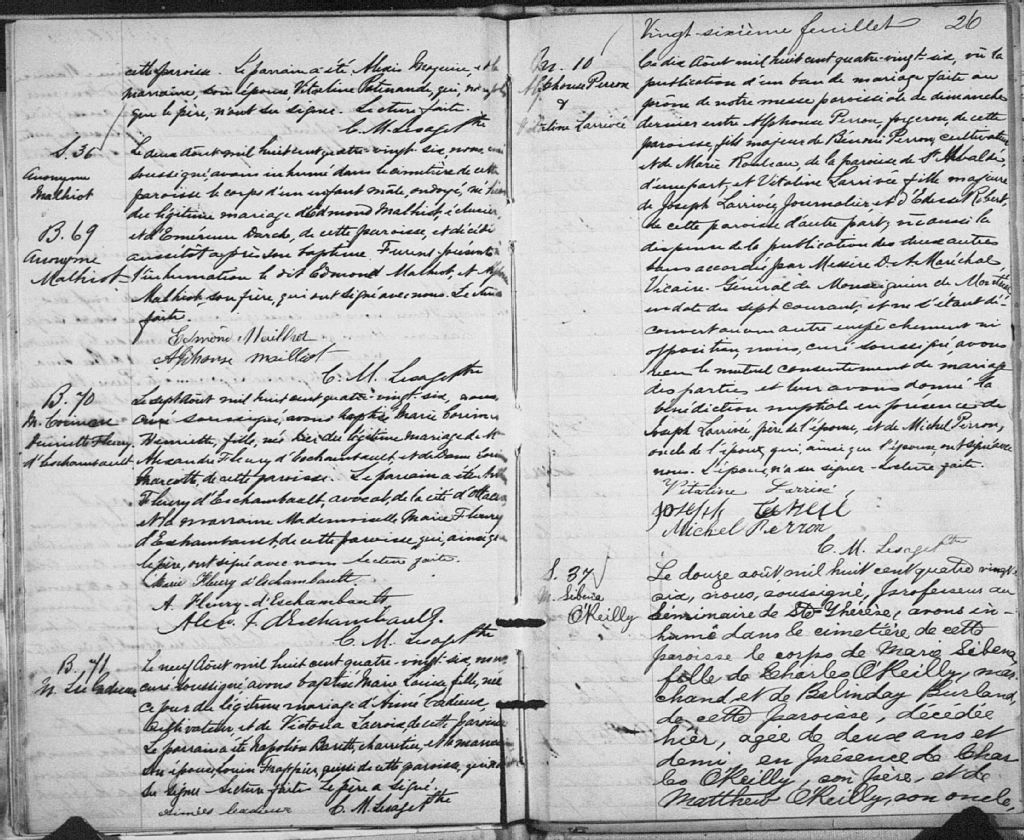 cette paroisse. Le parrain a été Alexis Gagnier, et la
marraine, son épouse Vitaline, qui,
que le père, n'ont su signer. Lecture faite.
C. M. Lesage Ptre
S. 36
Anonyme
Malhiot
Le deux Août mil huit cent quatre-vingt-six, nous curé
soussigné, avons inhumé dans le cimetière de cette
paroisse le corps d'un enfant mâle ondoyé, né hier
du légitime mariage d'Edmond Malhiot,
et d'Emérence Darche, de cette paroisse, et décédé
aussitôt après son baptême. Furent présents à
l'inhumation le dit Edmond Malhiot, et Alphonse
Malhiot, son frère, qui ont signé avec nous. Lecture
faite.
B. 69
Anonyme
Malhiot
Edmond Mailhot
Alphonse Mailliot
C. M. Lesage Ptre
B. 70
M. Corinne
Henriette Fleury
d'Eschambault
Le sept Août mil huit cent quatre-vingt-six, nous,
curé soussigné, avons baptisé Marie Corinne
Henriette, fille, née hier du légitime mariage de
Alexandre Fleury d'Eschambault, et de Dame
Marcotte, de cette paroisse. Le parrain a été
Fleury d'Eschambault, avocat, de la cité d'Ottawa
et la marraine Mademoiselle Marie Fleury
d'Eschambault, de cette paroisse, qui, ainsi que
le père, ont signé avec nous. Lecture faite.
Marie Fleury d'Eschambault
A. Fleury-d'Eschambault
Alex. F. d'Eschambault
C. M. Lesage Ptre
B. 71
M. Cadieux
Le neuf Août mil huit cent quatre-vingt-six, nous
curé soussigné avons baptisé Marie Louise, fille, née
ce jour du légitime mariage d'Aimé Cadieux,
Cultivateur, et de Victoria Lacroix, de cette paroisse
Le parrain a été Napoléon, charretier, et la marraine
son épouse, Frappier, aussi de cette paroisse, qui n'ont
su signer. Lecture faite. Le père a signé.
aimés Cadieux
C. M. Lesage Ptre
Vingt-sixième feuillet
26
M. 10
Alphonse Perron
&
Vitaline Larrivée
Le dix Août mil huit cent quatre-vingt-six, vu la
publication d'un ban de mariage faite au
prône de notre messe paroissiale de dimanche
dernier entre Alphonse Perron, forgeron, de cette
paroisse, fils majeur de Benoni Perron, cultivateur
et de Marie Rouleau, de la paroisse de St
d'une part, et Vitaline Larrivée fille majeure
de Joseph Larrivée Journalier et d' Robert,
de cette paroisse d'autre part; vu aussi la
dispense de la publication des deux autres
bans accordée par Messire Maréchal
Vicaire-Général de Monseigneur de Montréal
en date du sept courant, et ne s'étant dé-
couvert aucun autre empêchement ni
opposition, nous, curé soussigné, avons
reçu le mutuel consentement de mariage
des parties et leur avons donné la
bénédiction nuptiale en présence de
Joseph Larrivée, père de l'épouse, et de Michel Perron,
oncle de l'époux, qui, ainsi que l'épouse, ont signé avec
nous. L'époux n'a su signer. Lecture faite.
Vitaline Larrivé
Joseph
Michel Perron
C. M. Lesage Ptre
S. 37
M. Sibena
O'Reilly
Le douze août mil huit cent quatre vingt-
six, nous, soussigné, Professeur au
Séminaire de Ste-Thérèse, avons in-
humé dans le cimetière de cette
paroisse le corps de Marie Sibena,
fille de Charles O'Reilly, mar-
chand, et de Belinday Burland,
de cette paroisse, décédée
hier, agée de deux ans et
demi, en présence de Char
les O'Reilly, son père, et de
Matthew O'Reilly, son oncle,